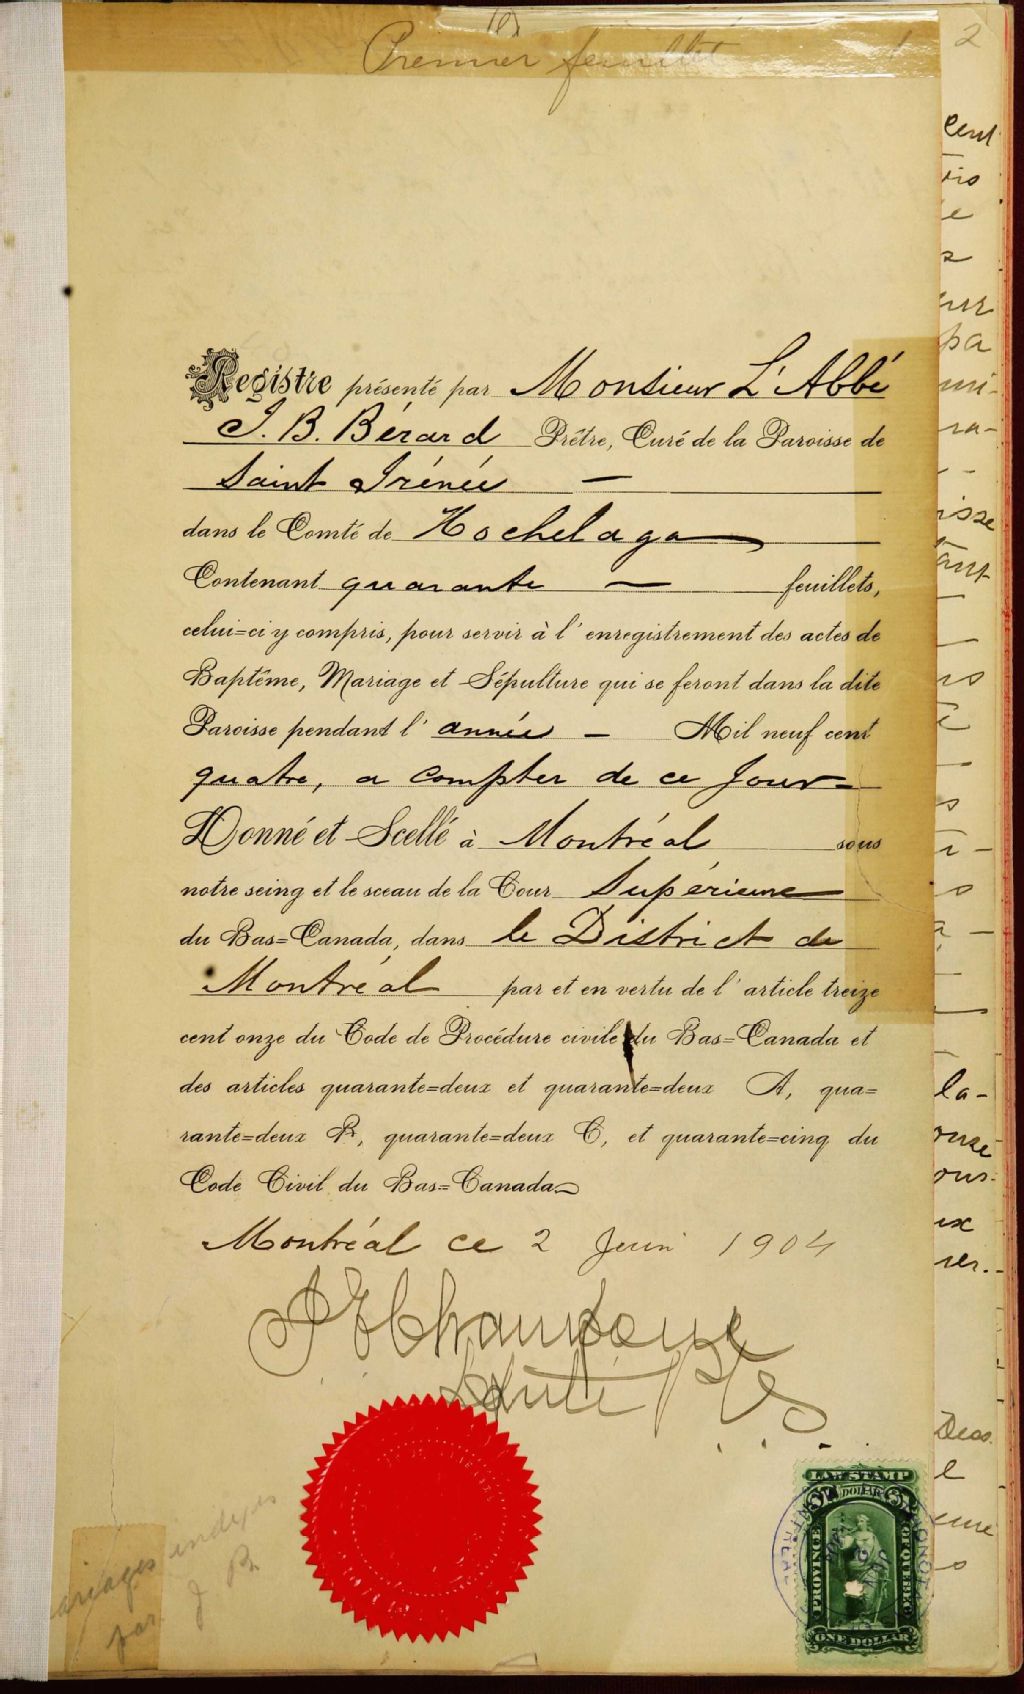 Premier feuillet
1
2
Registre présenté par Monsieur L'Abbé
J. B. Bérard Prêtre, Curé de la Paroisse de
Saint Irénée —
dans le Comté de Hochelaga
Contenant quarante — feuillets,
celui=ci y compris, pour servir à l'enregistrement des actes de
Baptême, Mariage et Sépulture qui se feront dans la dite
Paroisse pendant l'année — Mil neuf cent
quatre, a compter de ce jour-
Donné et Scellé à Montréal sous
notre seing et le sceau de la Cour Supérieure
du Bas=Canada, dans le District de
Montréal par et en vertu de l'article treize
cent onze du Code de Procédure civile du Bas=Canada et
des articles quarante=deux et quarante=deux A, qua=
rante=deux B, quarante=deux C, et quarante=cinq du
Code Civil du Bas=Canada
Montréal ce 2 Juin 1904
Mariages indexés
par J B
LAW STAMP
DOLLAR
PROVINCE OF QUEBEC
ONE DOLLAR